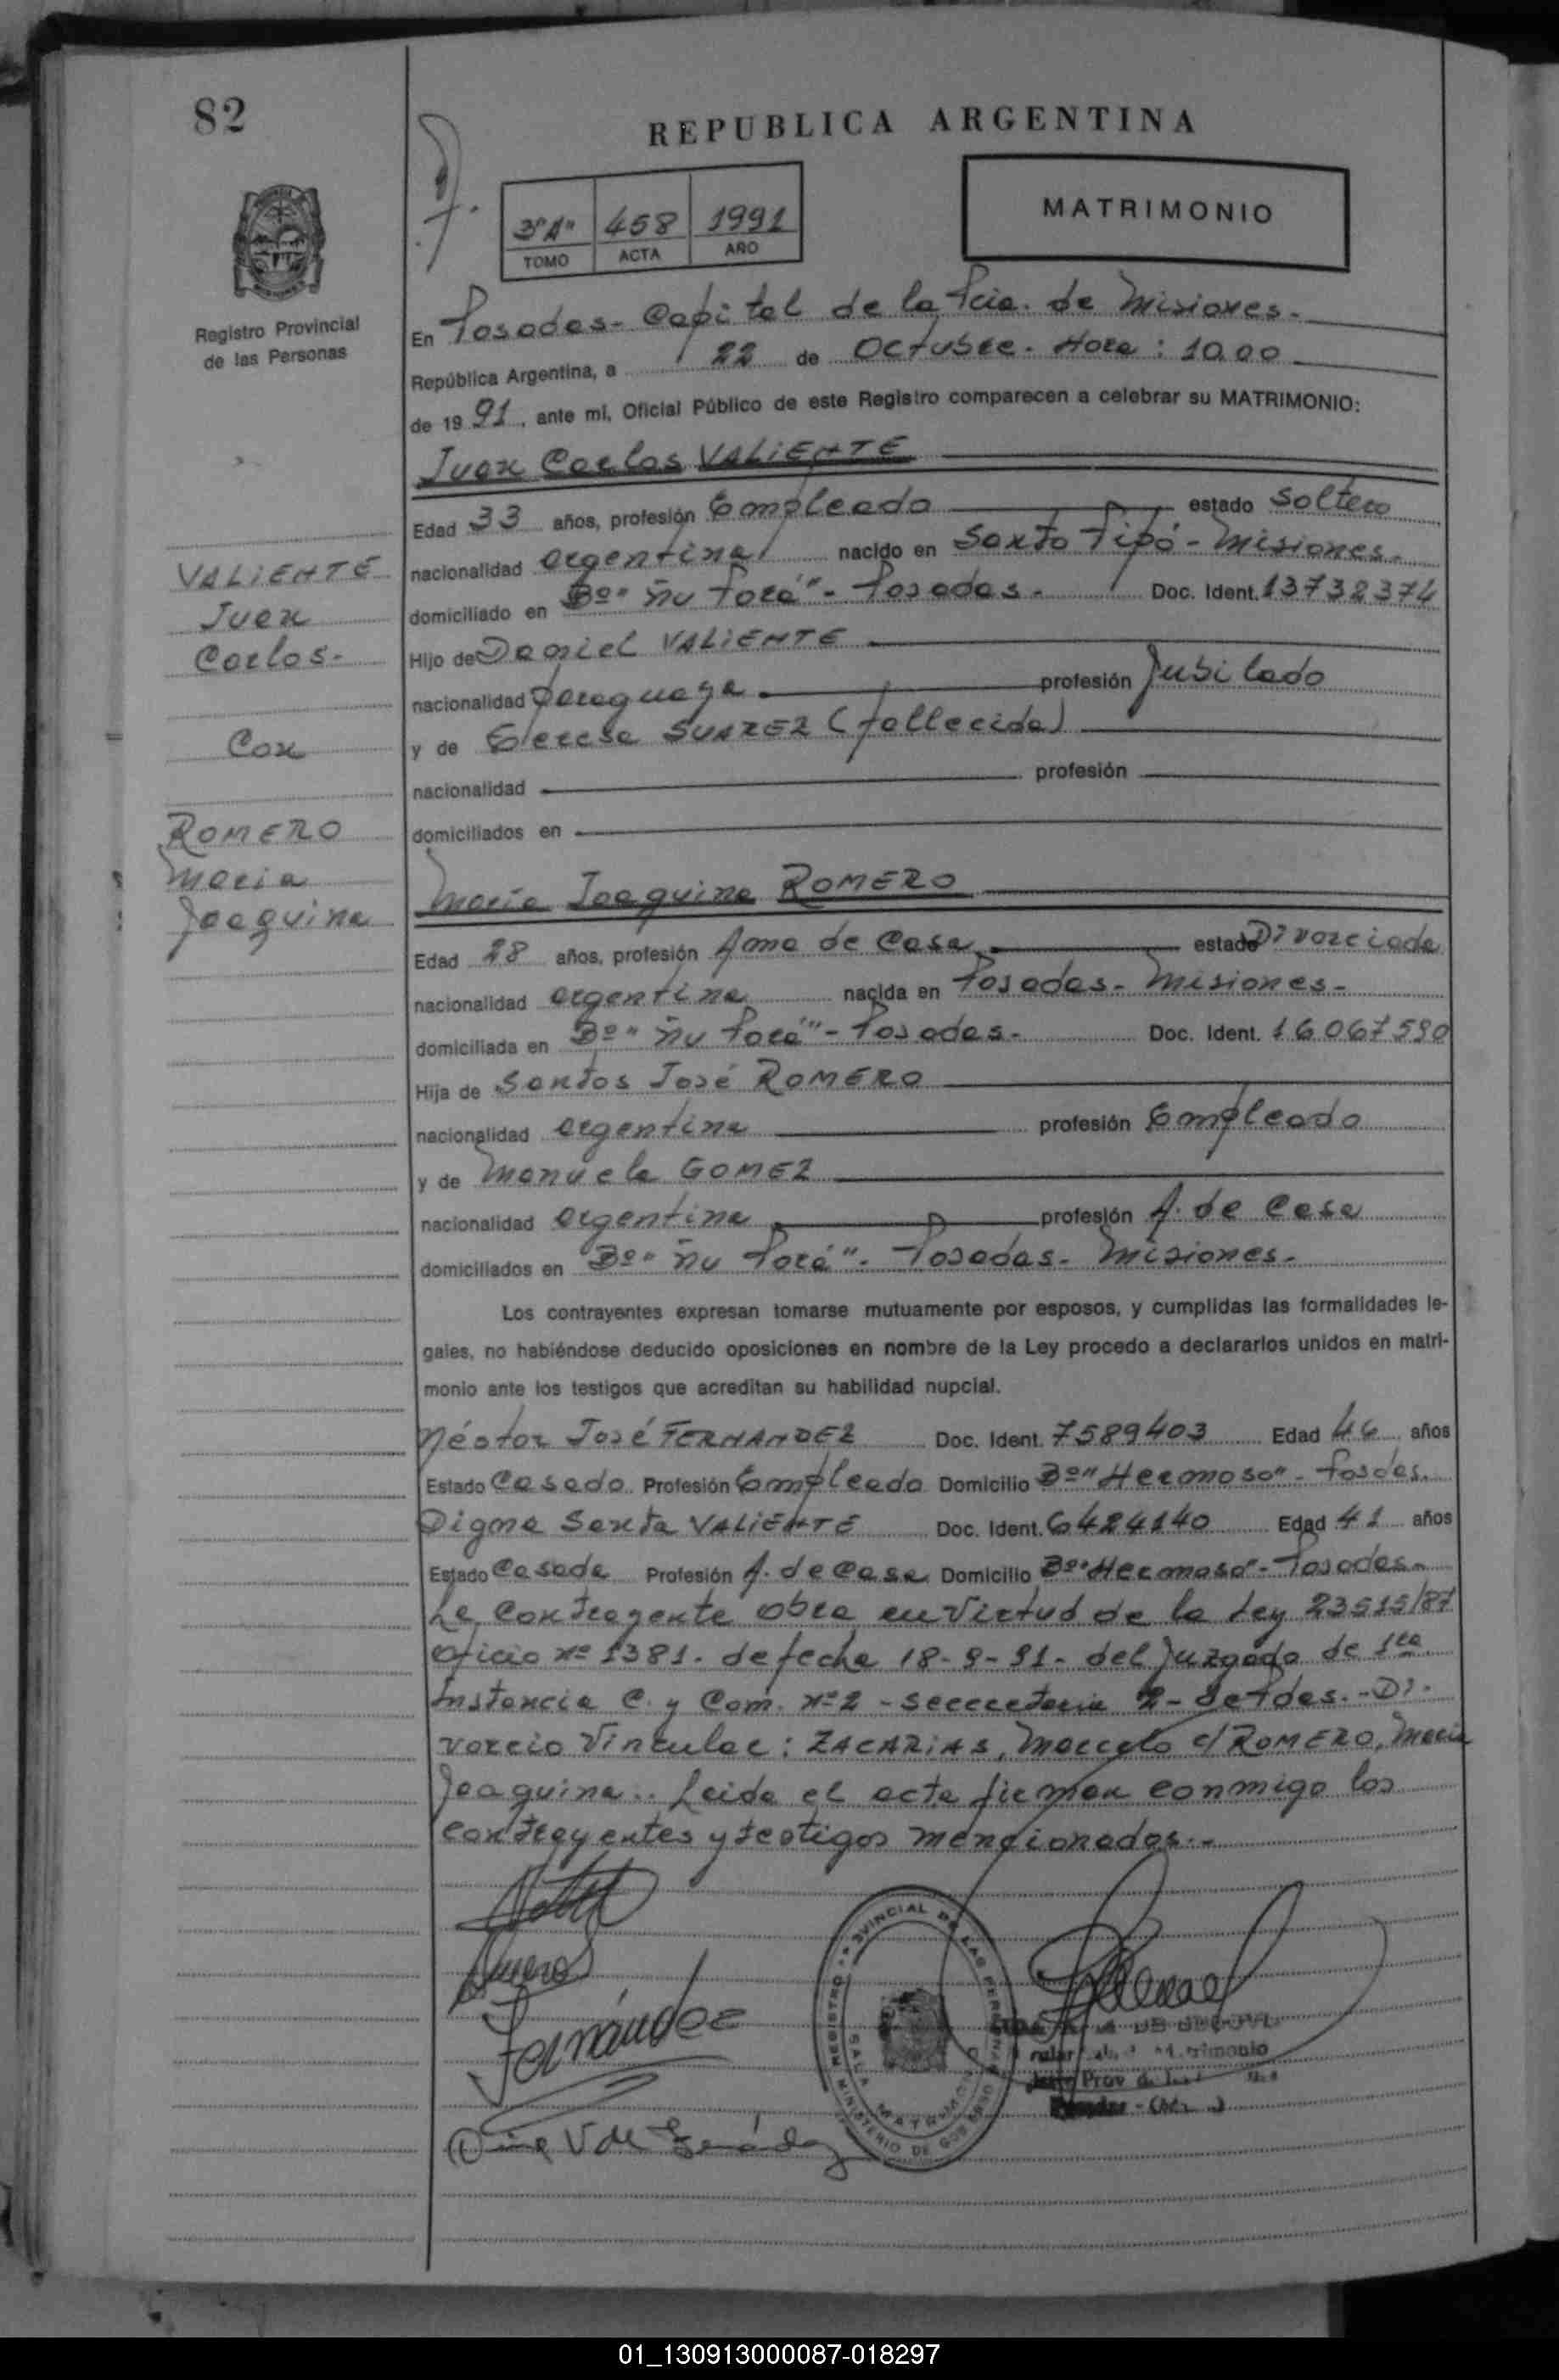 82
REPUBLICA ARGENTINA
MATRIMONIO
3º "A" 458 1991
TOMO ACTA AÑO
Registro Provincial
de las Personas
En Posadas - Capital de la Pcia. de Misiones.-
República Argentina, a 22 de Octubre. Hora: 10.00
de 1991, ante mi, Oficial Público de este Registro comparecen a celebrar su MATRIMONIO:
Juan Carlos VALIENTE
Edad 33 años, profesión Empleado estado Soltero
nacionalidad argentina nacido en Santo Pipó - Misiones.-
domiciliado en Bº "Ñu Porá" - Posadas.- Doc. Ident. 13732374
Hijo de Daniel VALIENTE
nacionalidad paraguaya profesión Jubilado
y de Teresa SUAREZ (fallecida)
nacionalidad profesión
domiciliados en
VALIENTE
Juan
Carlos-
Con
ROMERO
Maria
Joaquina
María Joaquina ROMERO
Edad 28 años, profesión Ama de Casa estado Divorciada
nacionalidad argentina nacida en Posadas - Misiones-
domiciliada en Bº "Ñu Porá" - Posadas.- Doc. Ident. 16067590
Hija de Santos José ROMERO
nacionalidad argentina profesión Empleado
y de Manuela GOMEZ
nacionalidad argentina profesión A. de Casa
domiciliados en Bº "Ñu Porá" - Posadas - Misiones-
Los contrayentes expresan tomarse mutuamente por esposos, y cumplidas las formalidades le-
gales, no habiéndose deducido oposiciones en nombre de la Ley procedo a declararlos unidos en matri-
monio ante los testigos que acreditan su habilidad nupcial.
Néstor José FERNANDEZ Doc. Ident. 7589403 Edad 46 años
Estado Casado Profesión Empleado Domicilio Bº "Hermoso" - Posdas.
Digna Santa VALIENTE Doc. Ident. 6424140 Edad 41 años
Estado Casada Profesión A. de Casa Domicilio Bº "Hermoso" - Posadas-
La contrayente obra en virtud de la Ley 23515/87
Oficio nº 1381. de fecha 18-9-91- del Juzgado de 1ra
Instancia C. y Com. nº 2 - Secretaria 2 - de Pdas. - Di-
vorcio Vincular: ZACARIAS, Marcelo c/ ROMERO, Maria
Joaquina.. Leida el acta firman conmigo los
contrayentes y testigos mencionados.-
Fernández
REGISTRO PROVINCIAL DE LAS PERSONAS
MINISTERIO DE GOBIERNO
01_130913000087-018297